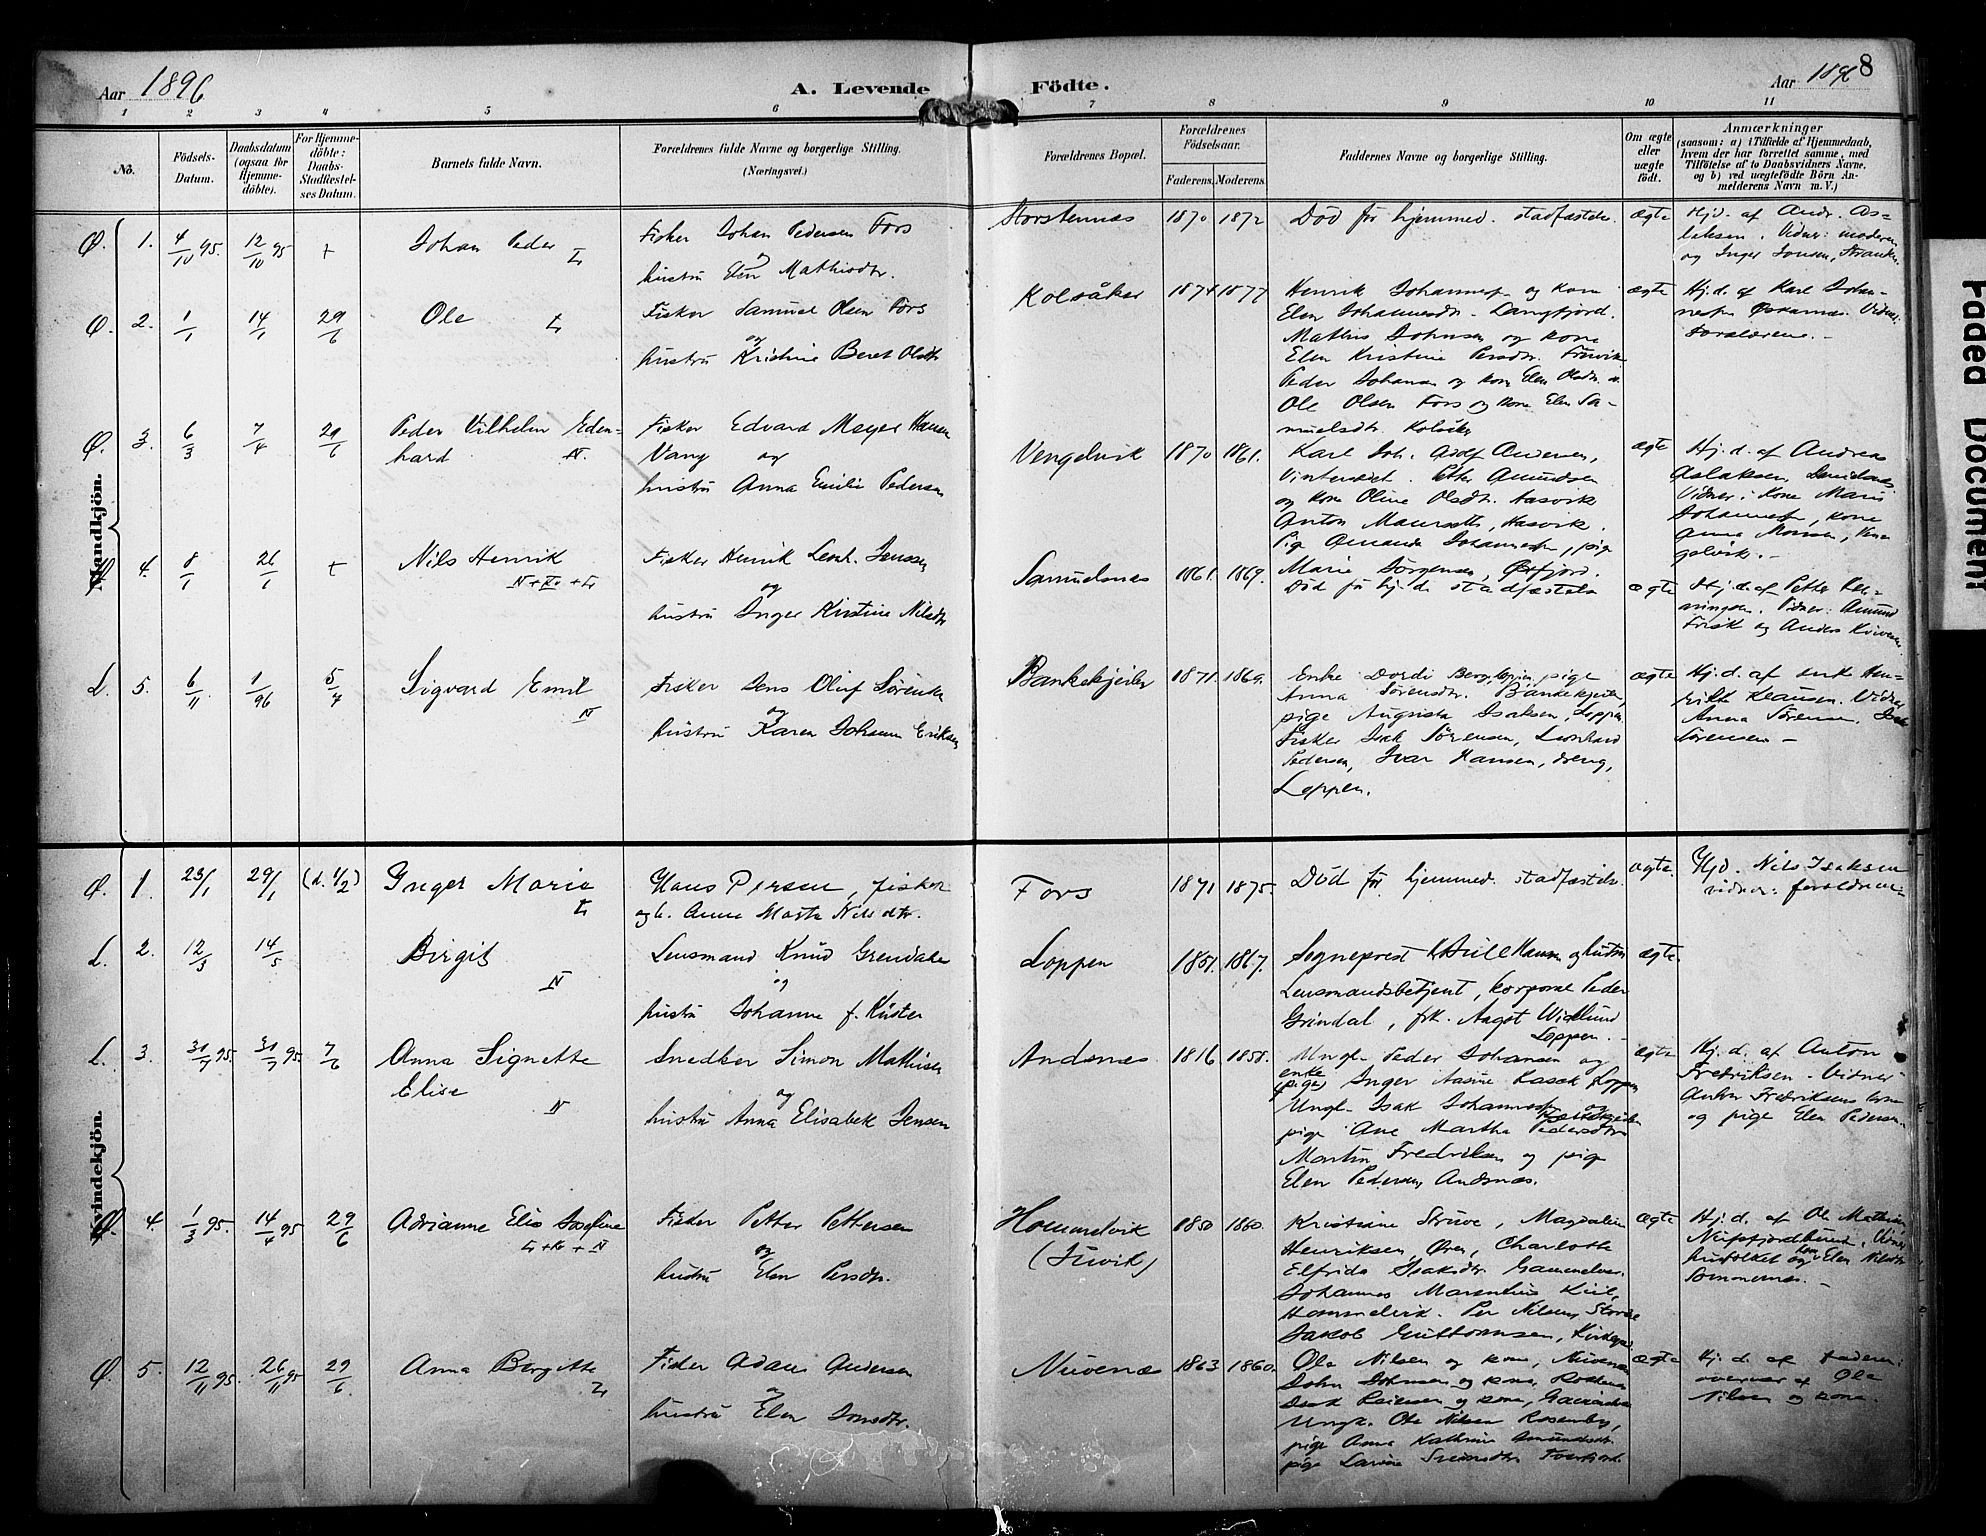 Aar 1896
A. Levende Födte.
Aar 1896
8
1 2 3 4 5 6 7 8 9 10 11
No.
Födsels-Datum.
Daabsdatum (ogsaa for Hjemmedöbte).
For Hjemmedöbte: Daabs-Stadfæstelses Datum.
Barnets fulde Navn.
Forældrenes fulde Navne og borgerlige Stilling. (Næringsvei.)
Forældrenes Bopæl.
Forældrenes Födselsaar.
Faderens. Moderens.
Faddernes Navne og borgerlige Stilling.
Om ægte eller uægte født.
Anmærkninger
(saasom: a) i Tilfælde af Hjemmedaab, hvem der har forrettet samme, med Tilföielse af to Daabsvidners Navne, og b) ved uægtefödte Börn Anmelderens Navn m. V.)
Mandkjön.
Ø. 1. 4/10 95. 12/10 95 +
Johan Peder
Fisker Johan Pedersen Fors
og
hustru Elen Mathisdtr.
Storstennæs 1870 1872
Död för hjemmed. stadfæstelse. ægte
Hjd. af Andr. Aslaksen. Vidner: moderen
og Inger Jonsen,
Ø. 2. 1/1 14/1 29/6
Ole
Fisker Samuel Olsen Fors
og
hustru Kristine Beret Olsdtr
Kolsåker 1874 1877
Henrik Johannes. og kone
Elen Johannesdtr. Langfjord.
Mathis Johnsen og kone
Elen Kristine Persdtr.
Peder Johans. og kone Elen Olsdtr.
Ole Olsen Fors og kone Elen Samuelsdtr.
ægte
Hj.d. af Karl Johannes. Vidner:
Forældrene.-
Ø. 3. 6/3 7/4 29/6
Peder Vilhelm Edenhard
N.
Fisker Edvard Meyer Hansen
Vang og
hustru Anna Emilie Pedersen
Vengelvik 1870 1861.
Karl Joh. Adolf Andersen,
Petter Amundsen
og kone Oline Olsdtr. Hasvik
Anton Hasvik.
Pige Amanda Johannes., pige
Marie Jørgensen, Øxfjord.
ægte
Hj.d. af Andreas
Aslaksen,
Vidner: Kone Maris
Johannes., kone
Anna Monsen, Vengelvik.-
4. 8/1 26/1 +
Nils Henrik
Fisker Henrik Leonh. Jenssen
og
hustru Inger Kirstine Nilsdtr
Samuelsnæs 1861. 1869.
Död før hj.d. stadfæstelse ægte
Hj.d. af Petter
Vidner: Amund
Frisk og Anders
L. 5. 6/11 1/96 5/4
Sigvard Emil
N
Fisker Jens Oluf Sørensen
og
hustru Karen Johanne Eriksen
Bankekjeilen 1871. 1869.
Enke Dordi pige
Anna Sørensdtr. Bankekjeilen,
pige Augusta Isaksen, Loppen
Fisker Isak Sørensen, Leonhard
Pedersen, Ivar Hansen, dreng,
Loppen.
ægte
Hj.d. af enke Henrikke Klausen. Vidner
Anna Sørensen, Isak
Sørensen-
Kvindekjön.
Ø. 1. 23/1 29/1 (d. 1/2)
Inger Marie
Hans Persen, fisker
og h. Anne Marte Nilsdtr.
Fors 1871 1875.
Död för hjemmed. stadfæstelse. ægte.
Hjd. Nils Isaksen
vidner: forældrene
L. 2. 12/3 14/5
Birgit
N
Lensmand Knud Grendahl
og
hustru Johanne f. Küster
Loppen 1851. 1867.
Sogneprest Hansen og hustru
Lensmandsbetjent, korporal Peder
Grindal, frk. Aagot Widlund
Loppen.
ægte.
L. 3. 31/7 95. 31/7 95. 7/6
Anna Signette
Elise
N
Snedker Simon Mathisen
og
hustru Anna Elisabek Jensen
Andsnæs 1816 1858.
Ungk. Peder Johansen og
enke
(pige) Inger Loppen
Ungk. Isak Johannes. og
pige Ane Martha Pedersdtr
Martin Fredriksen og pige
Elen Pedersen Andsnæs.
ægte
Hj.d. af Anton
Fredriksen. Vidner
Anton Fredriksens kone
og pige Elen Pedersen.
4. 1/3 95. 14/4 95 29/6
Adrianne Elis Josefine
Fisker Petter Pettersen
og
hustru Elen Persdtr.
Hommelvik 1850 1860.
Kristiane Struve, Magdalene
Henriksen, Charlotte
Elfrida Isaksdtr.
Johannes Marentius
Hommelvik. Per Nilsen,
Jakob Guttormsen,
ægte
Hj.d. af Ole Mathis.
Vidner
og Elen Nilsdtr
Ø. 5. 12/11 95. 26/11 95 29/6
Anna Bergitte
Fisker Adam Andersen
og
hustru Elen Jonsdtr.
Nuvenæs 1863 1860.
Ole Nilsen og kone, Nuvenæs
John Johnsen og kone,
Isak og kone,
Ungk. Ole Nilsen
pige Anna Kathrine
pige Larine
ægte
Hj.d. af faderen:
overvær af Ole
Nilsen og kone.
Faded Document